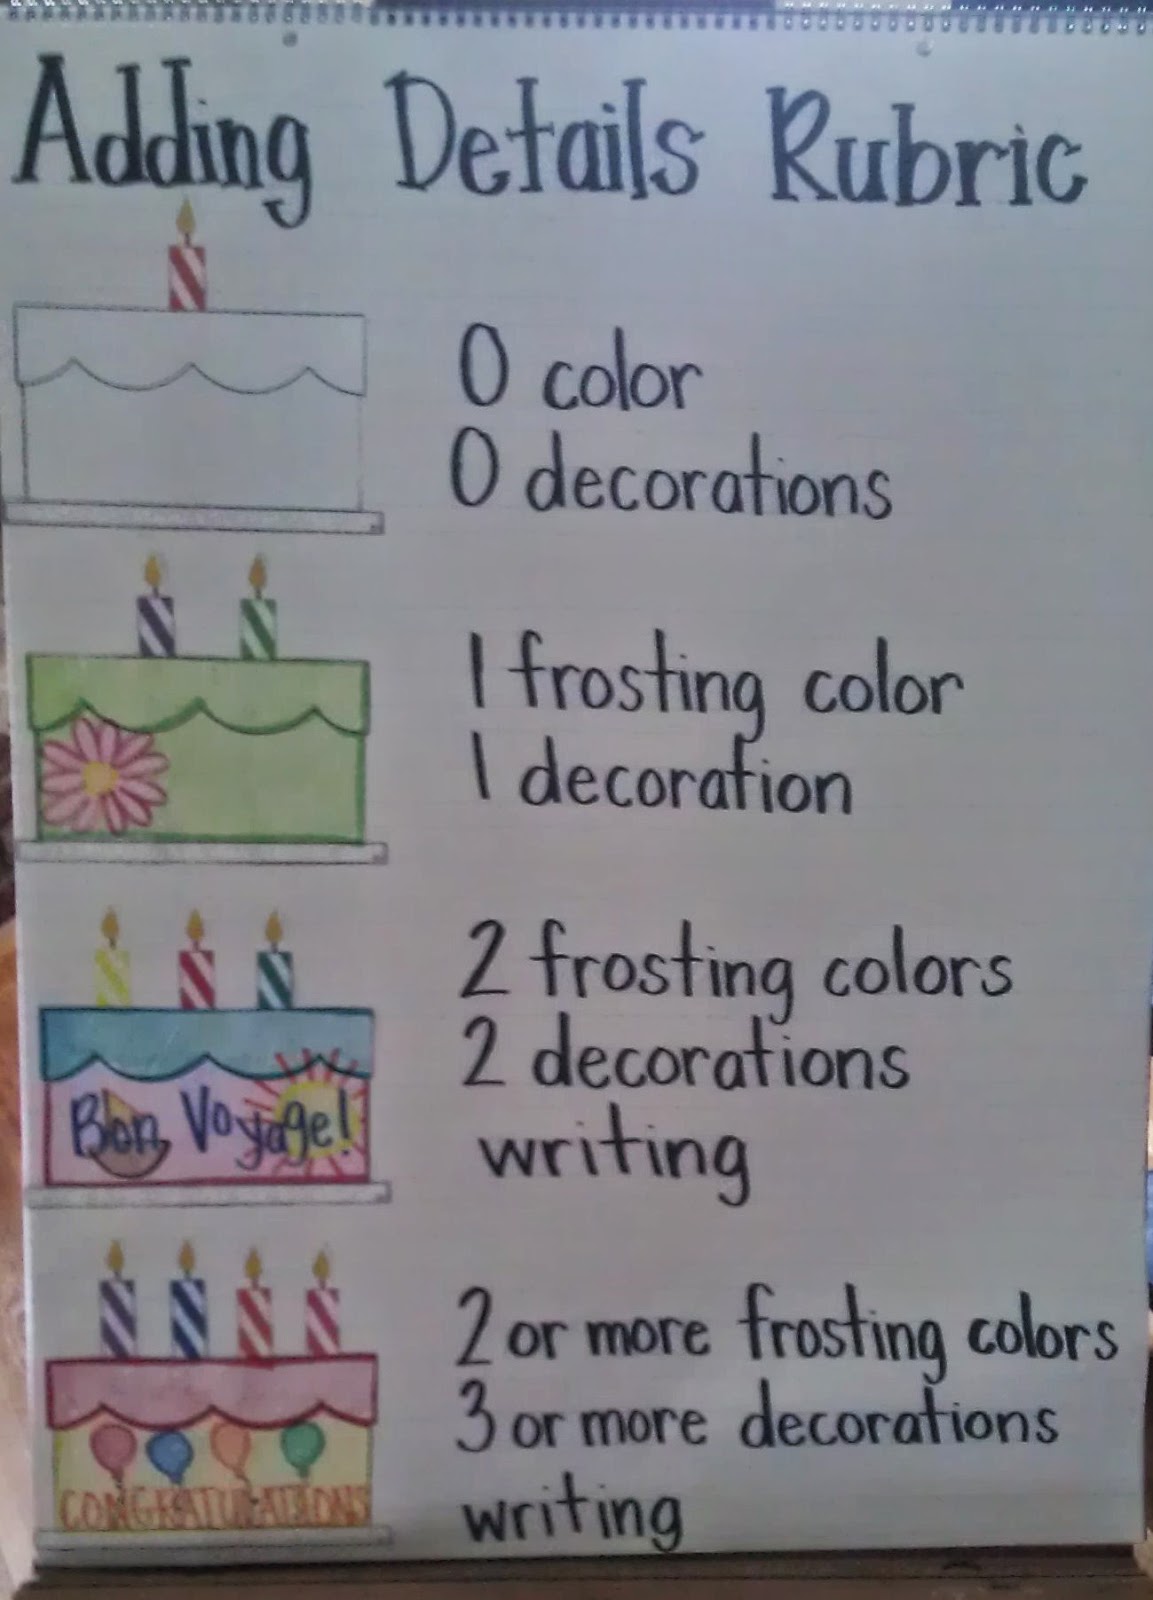 Adding Details Rubric
0 color
0 decorations
1 frosting color
1 decoration
2 frosting colors
2 decorations
writing
Bon Voyage!
2 or more frosting colors
3 or more decorations
writing
CONGRATULATIONS